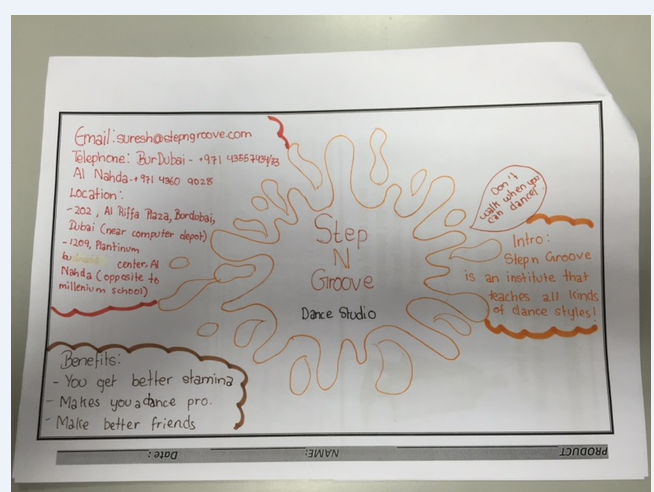 Email: suresh@stepngroove.com
Telephone: BurDubai - +971
Al Nahda - +971 4360 9028
Location:
- 202, Al Riffa Plaza, Burdubai,
Dubai (near computer depot)
- 1209, Plantinum
center Al
Nahda (opposite to
millenium school)
Step
N
Groove
Dance Studio
Don't
walk when you
can dance!
Intro:
Stepn Groove
is an institute that
teaches all kinds
of dance styles!
Benefits:
- You get better stamina
- Makes you a dance pro.
- Make better friends
PRODUCT
NAME:
Date: